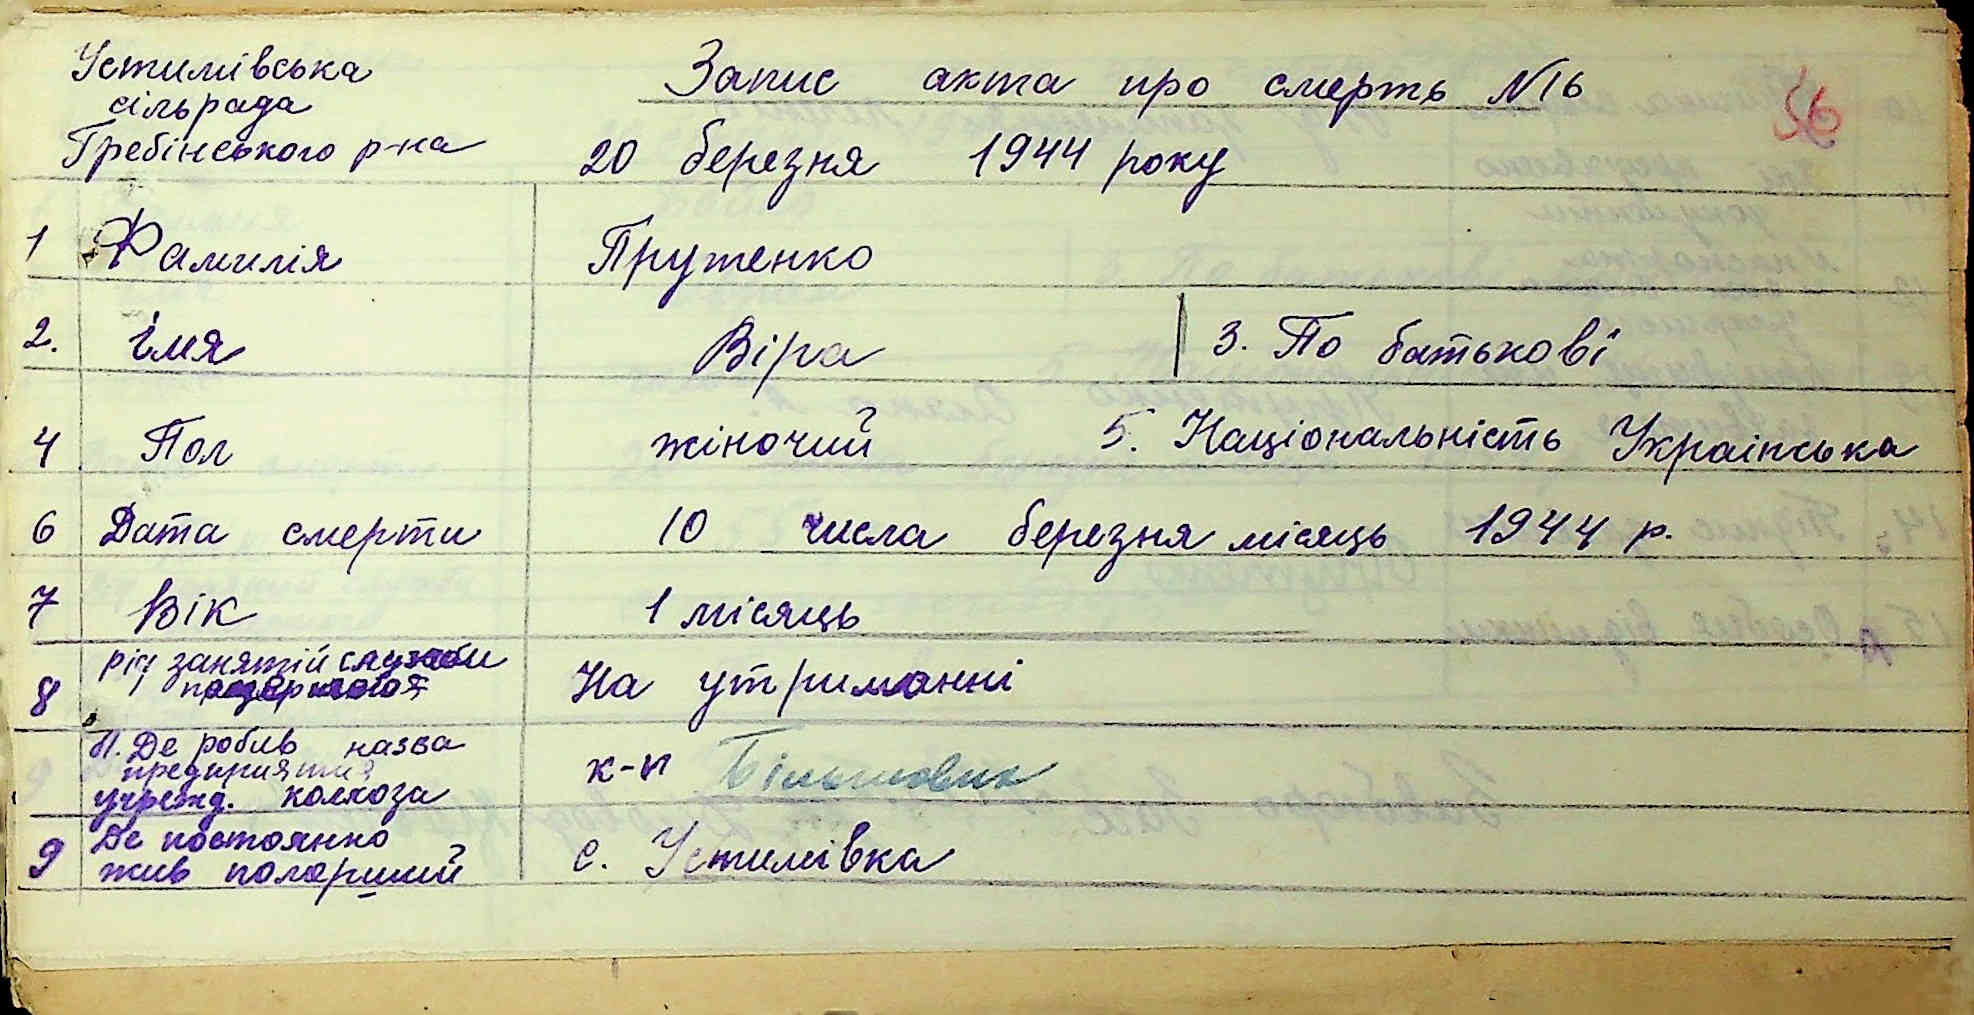 Устимівська
сільрада
Гребінського р-на
Запис акта про смерть N16
56
20 березня 1944 року
1 Фамилія Прутенко
2. імя Віра 3. По батькові
4 Пол жіночий 5. Національність Українська
6 Дата смерти 10 числа березня місяць 1944 р.
7 Вік 1 місяць
8 рід занятій служби
На утриманні
П. Де робив назва
предприятия
учрежд. колхоза
к-п Більшовик
9 Де постоянно
жив померший
с. Устимівка